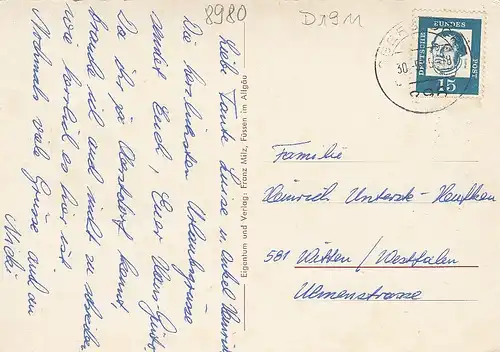 8980
D1911
DEUTSCHE BUNDESPOST
15
30.
Liebe Tante Luise u. Onkel Heinrich
Die herzlichsten Urlaubsgrüsse
sendet Euch, Euer Hans-Günter
Da ihr ja Oberstdorf kennt
brauche ich auch nicht zu schreiben
wie herrlich es hier ist
Nochmals viele Grüsse auch an
Eigentum und Verlag: Franz Milz, Füssen im Allgäu
Familie
Heinrich Unterste-
581 Witten / Westfalen
Ulmenstrasse